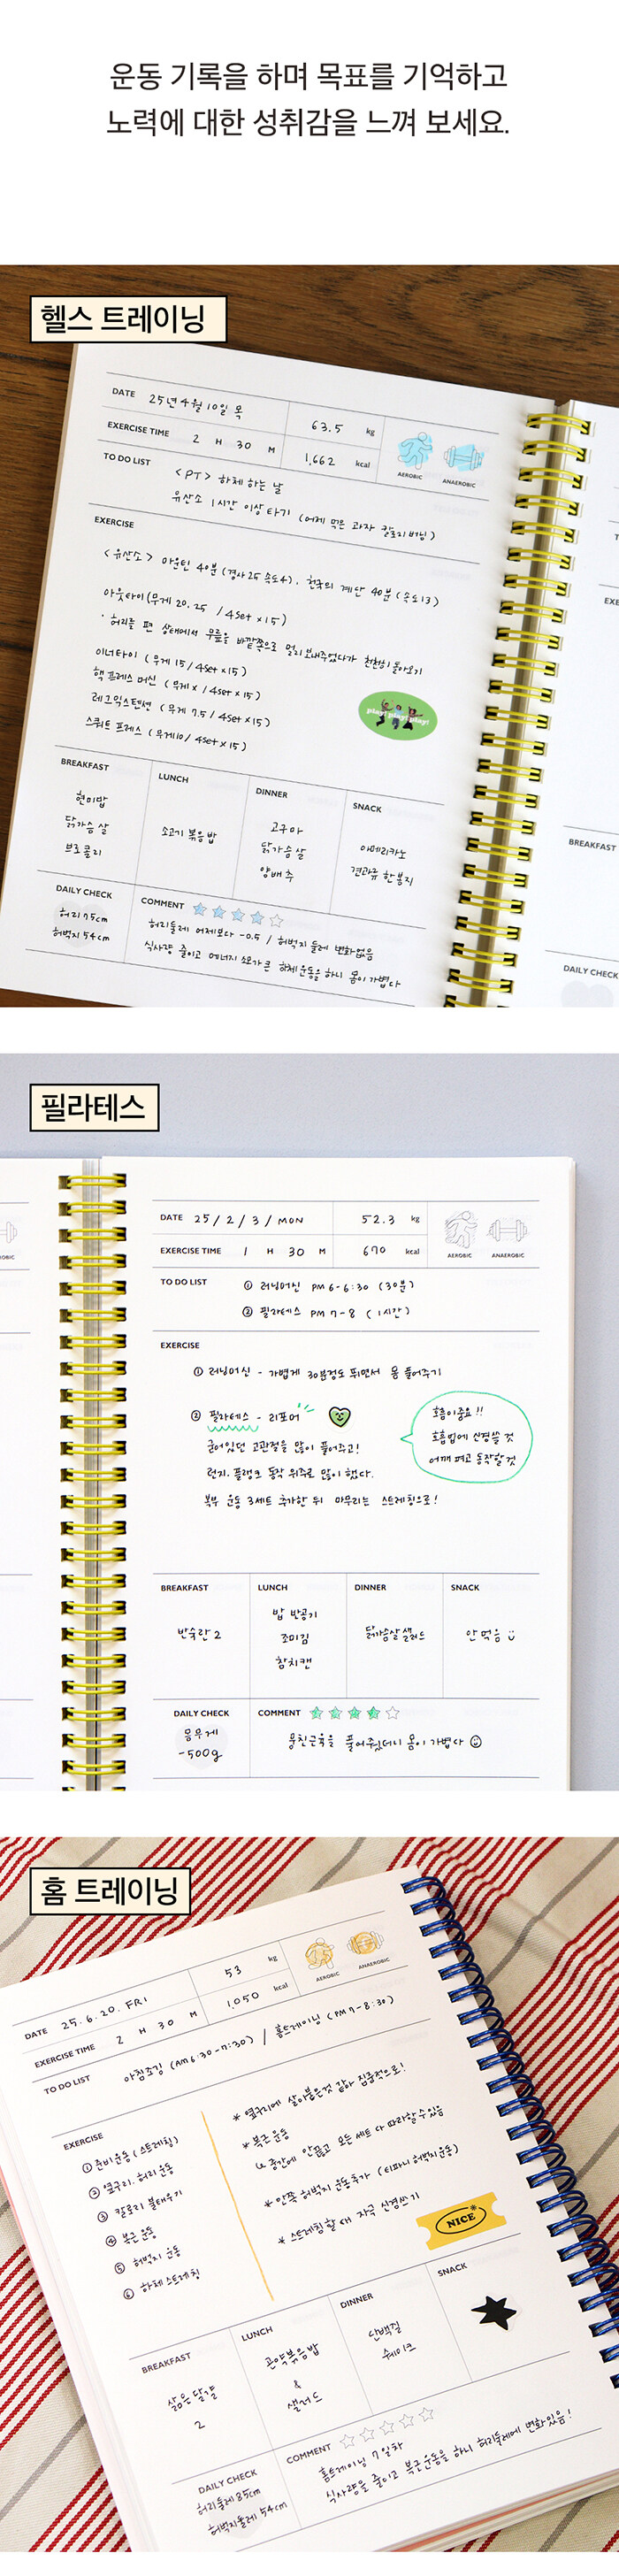 운동 기록을 하며 목표를 기억하고
노력에 대한 성취감을 느껴 보세요.
헬스 트레이닝
DATE 25년 4월 10일 목 63.5 kg
EXERCISE TIME 2 H 30 M 1,662 kcal
AEROBIC ANAEROBIC
TO DO LIST <PT> 하체 하는 날
유산소 1시간 이상 타기 (어제 먹은 과자 칼로리 버닝)
EXERCISE
<유산소> 마운틴 40분 (경사 25 속도 4), 천국의 계단 40분 (속도 13)
아웃타이 (무게 20. 25 / 4set x 15)
· 허리를 편 상태에서 무릎을 바깥쪽으로 멀리 보내주었다가 천천히 돌아오기
이너타이 (무게 15 / 4set x 15)
핵 프레스 머신 (무게 x / 4set x 15)
레그 익스텐션 (무게 7.5 / 4set x 15)
스쿼트 프레스 (무게 10 / 4set x 15)
play! play! play!
BREAKFAST LUNCH DINNER SNACK
현미밥
닭가슴살
브로콜리
소고기 볶음밥
고구마
닭가슴살
양배추
아메리카노
견과류 한 봉지
DAILY CHECK
허리 75cm
허벅지 54cm
COMMENT
허리둘레 어제보다 -0.5 / 허벅지 둘레 변화없음
식사량 줄이고 에너지 소모가 큰 하체 운동을 하니 몸이 가볍다
EXE
BREAKFAST
DAILY CHECK
필라테스
OBIC
DATE 25 / 2 / 3 / MON 52.3 kg
EXERCISE TIME 1 H 30 M 670 kcal
AEROBIC ANAEROBIC
TO DO LIST ① 러닝머신 PM 6-6:30 (30분)
② 필라테스 PM 7-8 (1시간)
EXERCISE
① 러닝머신 - 가볍게 30분정도 뛰면서 몸 풀어주기
② 필라테스 - 리포머
굳어있던 고관절을 많이 풀어주고!
런지, 플랭크 동작 위주로 많이 했다.
복부 운동 3세트 추가한 뒤 마무리는 스트레칭으로!
호흡이 중요!!
호흡법에 신경쓸 것
어깨 펴고 동작할 것
BREAKFAST LUNCH DINNER SNACK
반숙란 2
밥 반공기
조미김
참치캔
닭가슴살 샐러드
안 먹음
DAILY CHECK
몸무게
-500g
COMMENT
뭉친근육을 풀어주었더니 몸이 가볍다
홈 트레이닝
DATE 25. 6. 20. FRI 53 kg
EXERCISE TIME 2 H 30 M 1,050 kcal
AEROBIC ANAEROBIC
TO DO LIST 아침조깅 (AM 6:30-7:30) / 홈트레이닝 (PM 7-8:30)
EXERCISE
① 준비운동 (스트레칭)
② 옆구리, 허리 운동
③ 칼로리 불태우기
④ 복근 운동
⑤ 허벅지 운동
⑥ 하체 스트레칭
* 옆구리에 살이 붙은것 같아 집중적으로!
* 복근 운동
↳ 중간에 안 끊고 모든 세트 다 따라할 수 있음
* 안쪽 허벅지 운동 추가 (티파니 허벅지 운동)
* 스트레칭 할 때 자극 신경쓰기
NICE
BREAKFAST LUNCH DINNER SNACK
삶은 달걀
2
곤약볶음밥
&
샐러드
단백질
쉐이크
DAILY CHECK
허리둘레 85cm
허벅지둘레 54cm
COMMENT
홈트레이닝 7일차
식사량을 줄이고 복근운동을 하니 허리둘레에 변화있음!